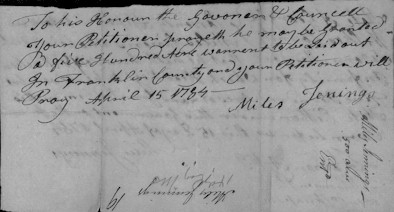 To his Honour the Govoner & Councell
Your Petitioner prayeth he may be Granted
A five Hundred Acre warrent to be Laid out
In Franklin County and your Petitioner will
Pray April 15 1784
Miles Jenings
Miles Jennings
500 acres